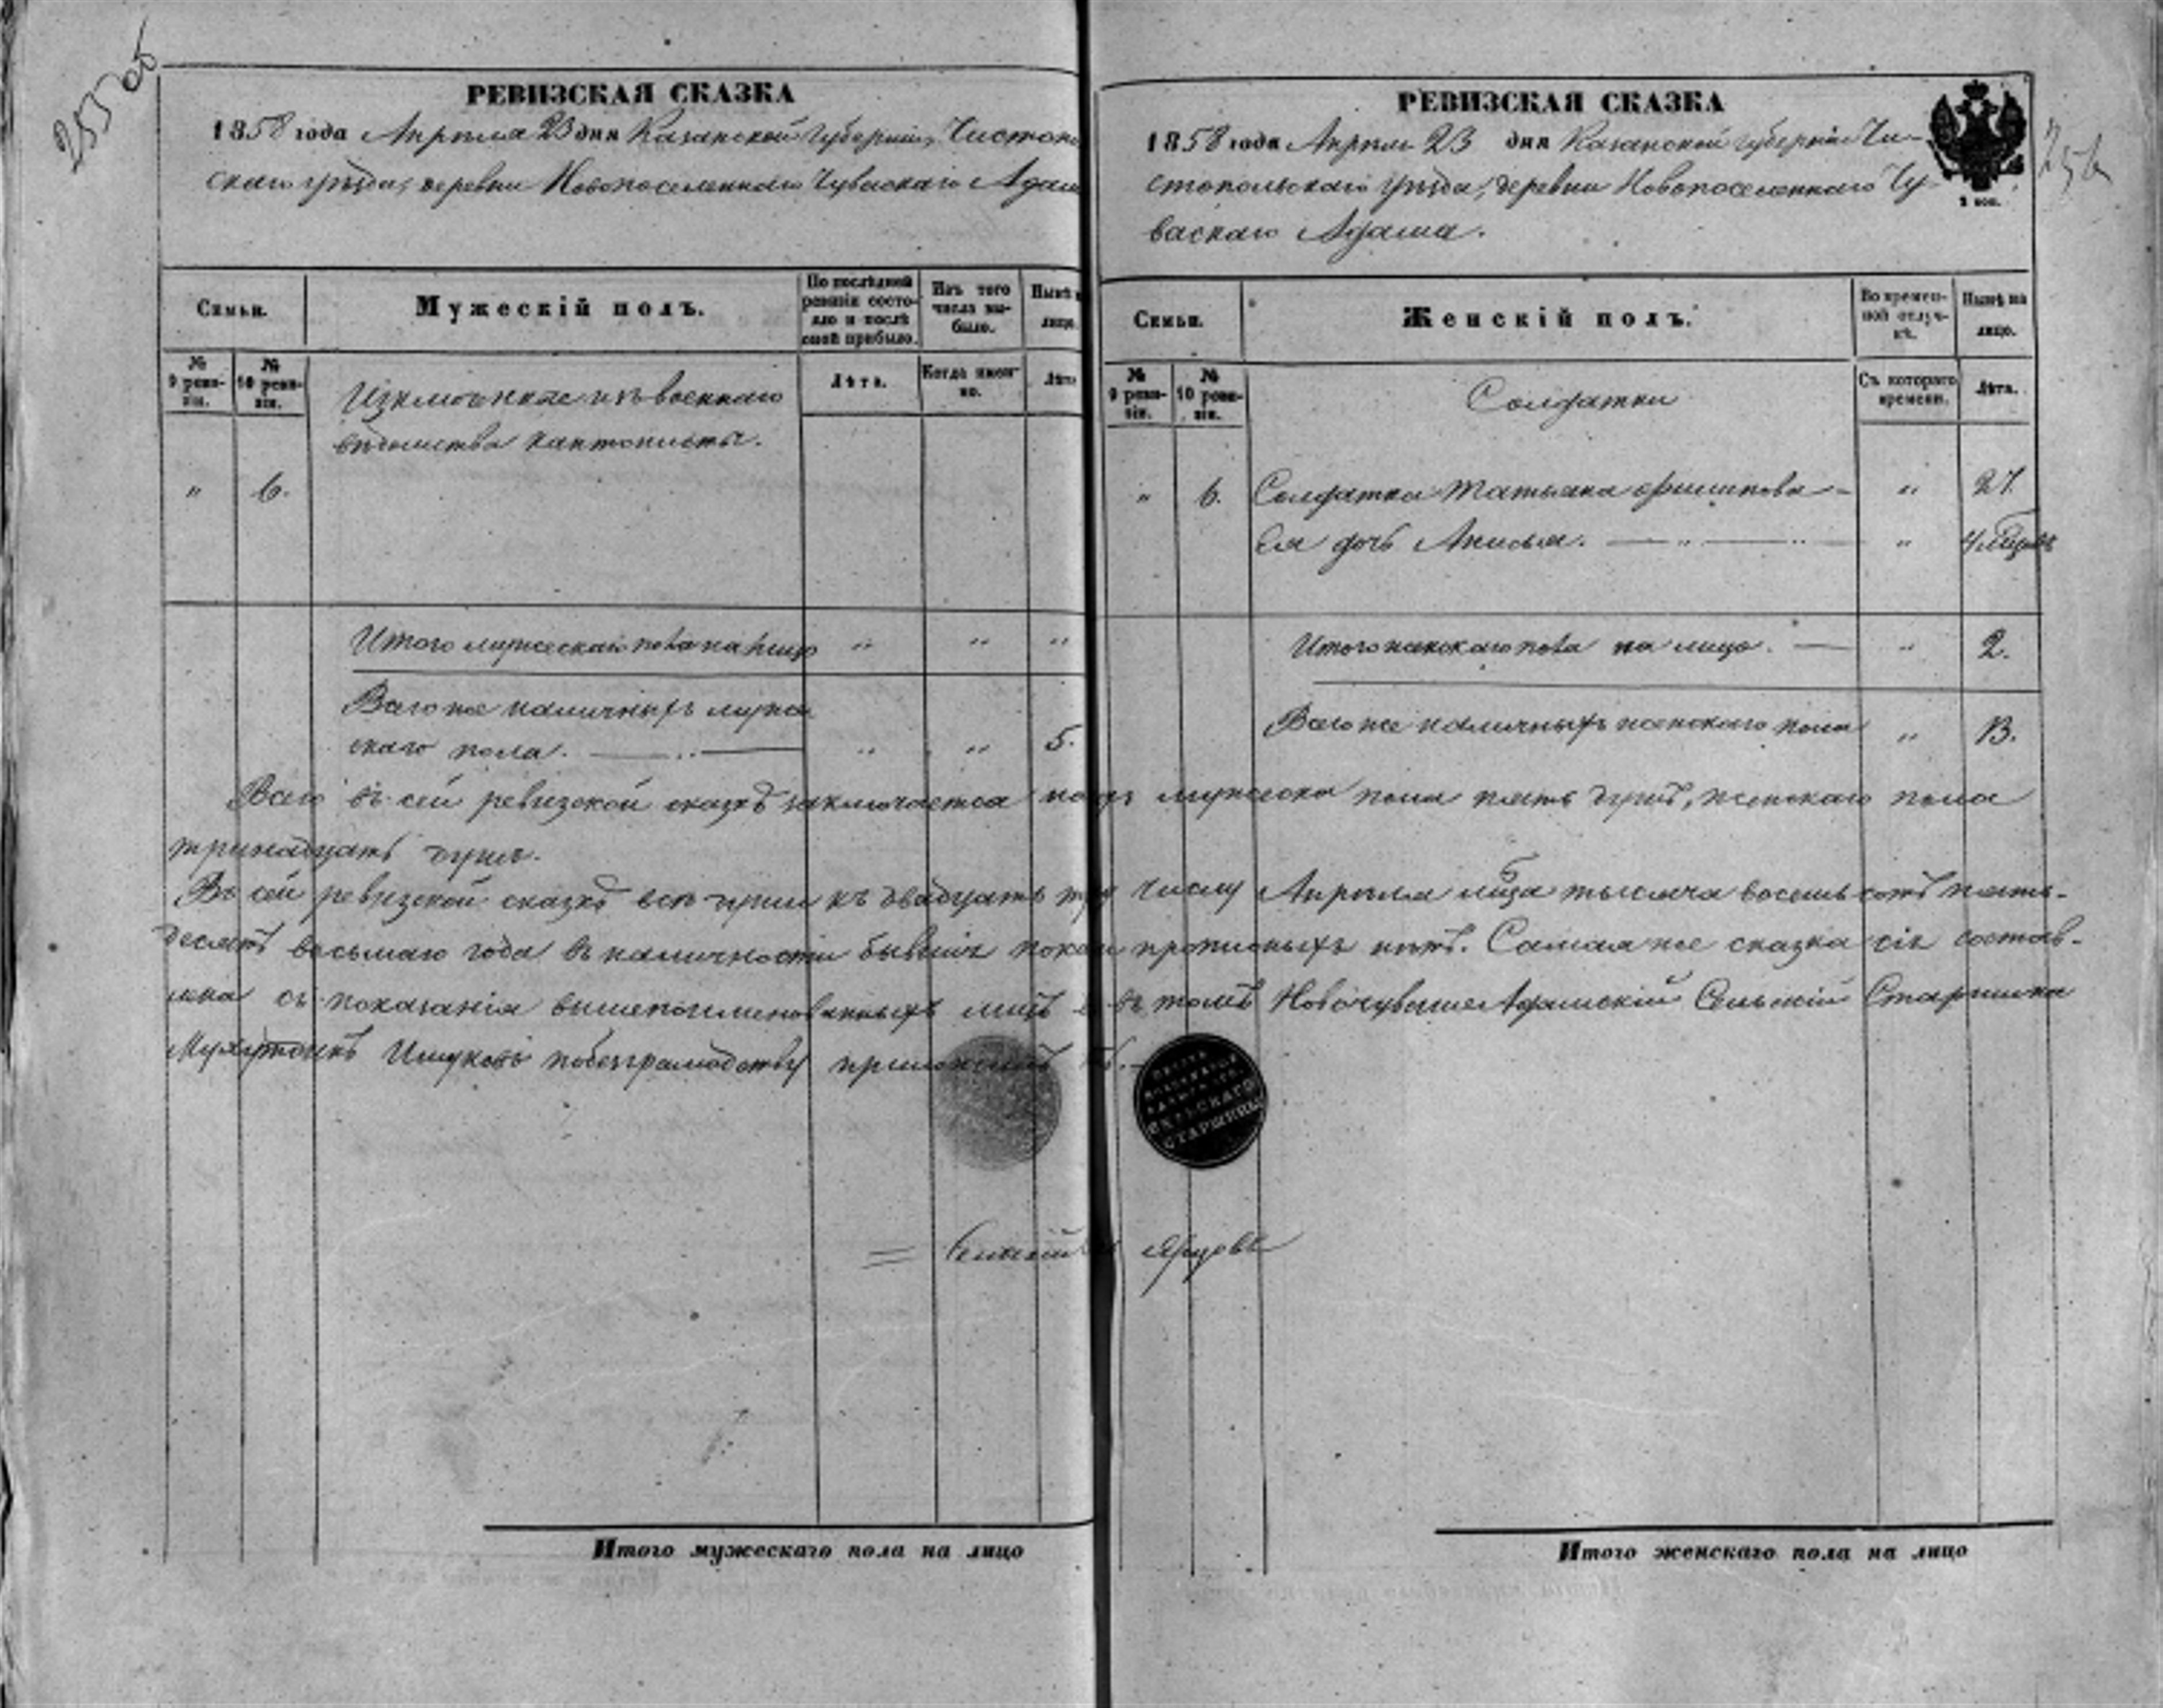 255 об
РЕВИЗСКАЯ СКАЗКА
1858 года Апреля 23 дня Казанской Губернии, Чистопо
скаго уѣзда, деревни Новопоселеннаго Чувасскаго Адам
Семьи.
Мужескій полъ.
По послѣдней ревизіи состояло и послѣ оной прибыло.
Изъ того числа выбыло.
Нынѣ
лицо.
№ 9 ревизіи.
№ 10 ревизіи.
Лѣта.
Когда именно.
Лѣта
Изключенные изъ военнаго
вѣдомства кантонисты.
" 6.
Итого мужескаго пола на лицо " " "
Всего же наличныхъ муже
скаго пола. " " 5.
РЕВИЗСКАЯ СКАЗКА
1858 года Апреля 23 дня Казанской губерніи Чи-
стопольскаго уѣзда, деревни Новопоселеннаго Чу-
васкаго Адама.
2 коп.
Семьи.
Женскій полъ.
Во временной отлучкѣ.
Нынѣ на лицо.
№ 9 ревизіи.
№ 10 ревизіи.
Съ котораго времени.
Лѣта.
Солдатки
" 6. Солдатка Татьяна Филипова " 27.
Ея дочь Анисья. " 4
Итого женскаго пола на лицо. " 2.
Всего же наличныхъ женскаго пола " 13.
Всего въ сей ревизской сказкѣ заключается мужеска пола пять душъ, женскаго пола
тринадцать душъ.
Въ сей ревизской сказкѣ всѣ души къ двадцать числу Апреля мца тысяча восемь сотъ пять-
десятъ восьмаго года въ наличности бывшія прописныхъ нѣтъ. Самая же сказка сія состав-
лена съ показанія вышепоименованныхъ лицъ въ томъ Сельскій Старшина
Ишуковъ по безграмотству приложилъ
СЕЛЬСКАГО
СТАРШИНЫ
Итого мужескаго пола на лицо
Итого женскаго пола на лицо